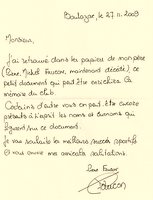 Boulogne, le 27.11.2009
Monsieur,
J'ai retrouvé dans les papiers de mon père
(Pierre, Michel Foucon, maintenant décédé), ce
petit document qui peut être enrichira la
mémoire du club.
Certains d'entre vous en peut être encore
présents à l'esprit les noms et surnoms qui
figurent sur ce document.
Je vous souhaite les meilleurs succès sportifs
vous envoie mes amicales salutations.